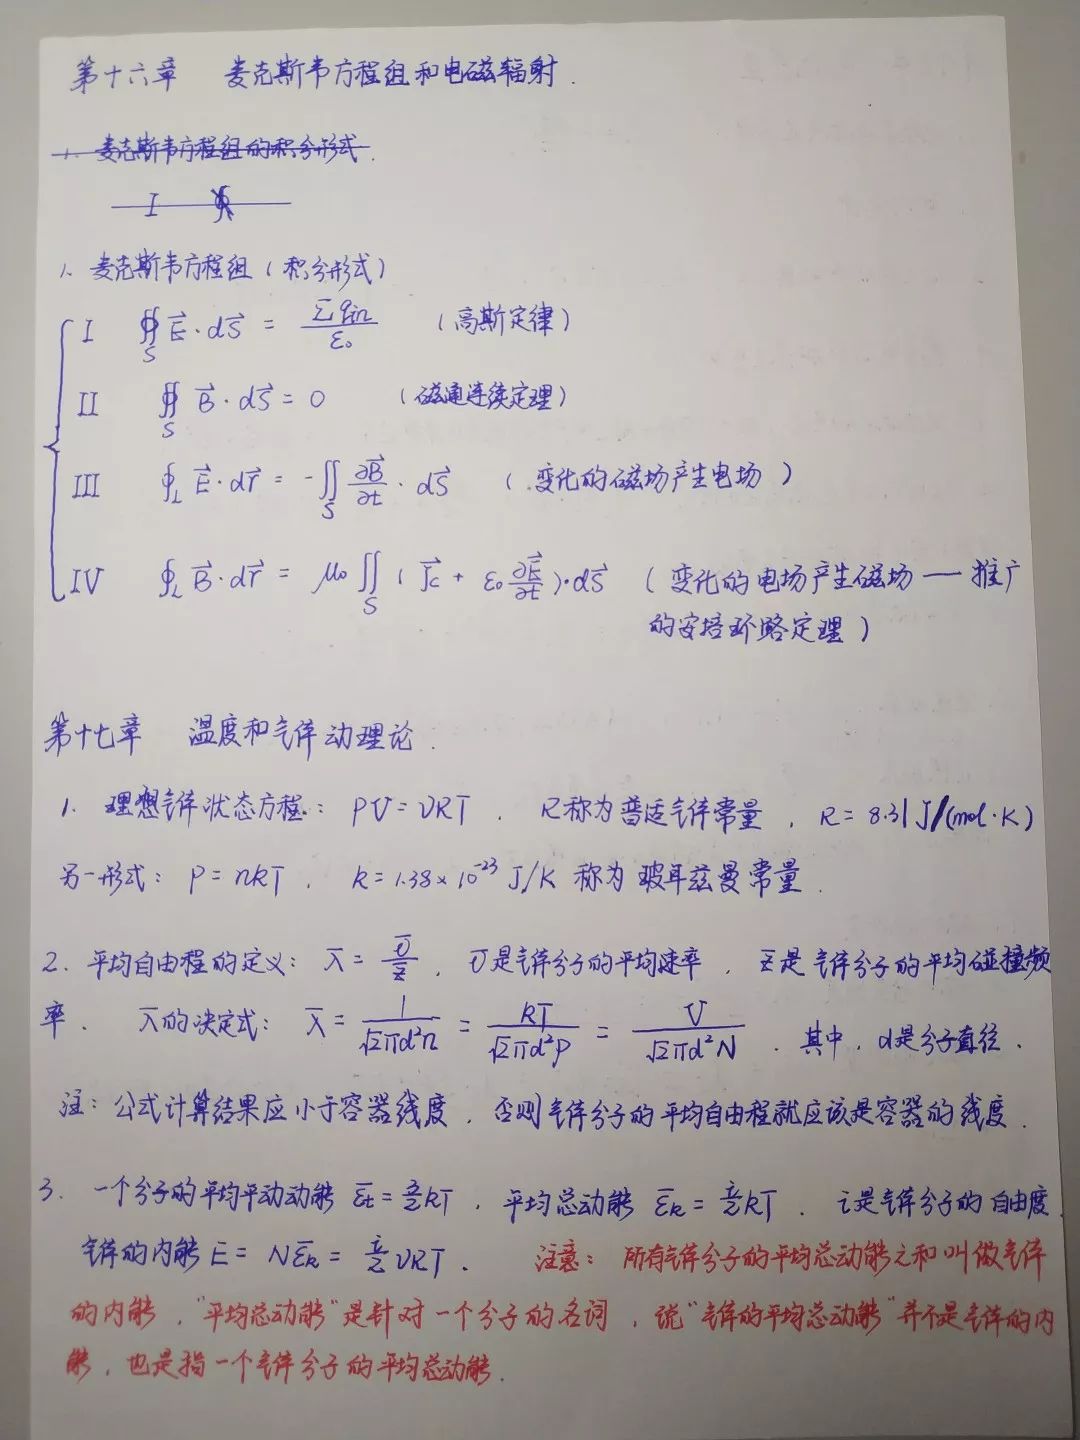 第十六章 麦克斯韦方程组和电磁辐射.
1. 麦克斯韦方程组的积分形式.
I ∮
1. 麦克斯韦方程组(积分形式)
I ∯_S E⃗·dS⃗ = Σq_in/ε₀ (高斯定律)
II ∯_S B⃗·dS⃗ = 0 (磁通连续定理)
III ∮_L E⃗·dr⃗ = -∬_S ∂B⃗/∂t · dS⃗ (变化的磁场产生电场)
IV ∮_L B⃗·dr⃗ = μ₀∬_S (J⃗c + ε₀ ∂E⃗/∂t)·dS⃗ (变化的电场产生磁场——推广
的安培环路定理)
第十七章 温度和气体动理论.
1. 理想气体状态方程: PV=νRT. R称为普适气体常量, R=8.31J/(mol·K)
另一形式: P=nkT. k=1.38×10⁻²³J/K 称为玻耳兹曼常量.
2. 平均自由程的定义: λ̄ = v̄/z̄, v̄是气体分子的平均速率, z̄是气体分子的平均碰撞频
率. λ̄的决定式: λ̄ = 1/(√2πd²n) = kT/(√2πd²p) = V/(√2πd²N). 其中, d是分子直径.
注: 公式计算结果应小于容器线度, 否则气体分子的平均自由程就应该是容器的线度.
3. 一个分子的平均平动动能 ε̄t = 3/2 kT, 平均总动能 ε̄k = i/2 kT. i是气体分子的自由度.
气体的内能 E = Nε̄k = i/2 νRT. 注意: 所有气体分子的平均总动能之和叫做气体
的内能, "平均总动能"是针对一个分子的名词, 说"气体的平均总动能"并不是气体的内
能, 也是指一个气体分子的平均总动能.